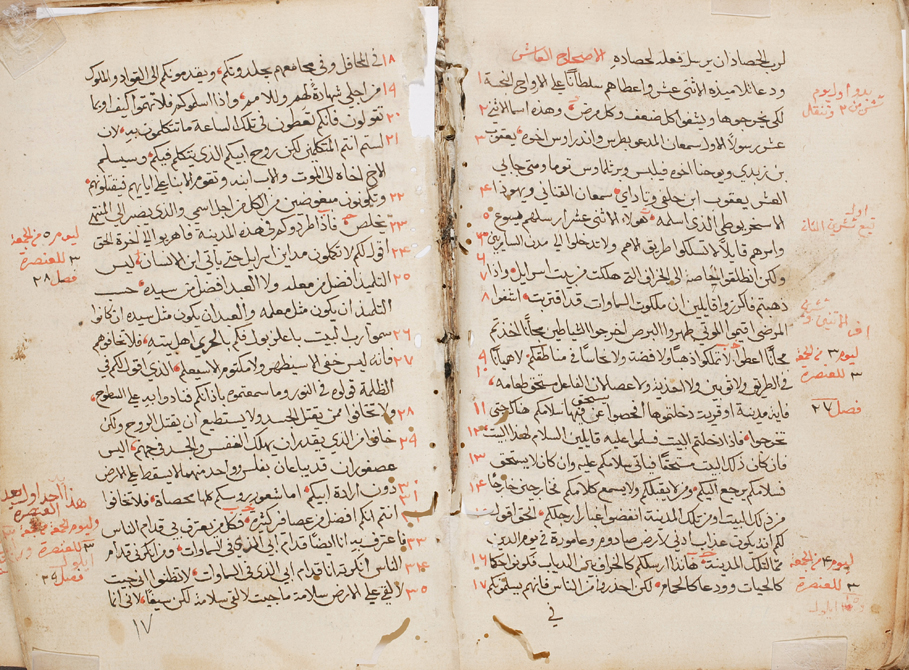 لرب الحصاد ان يرسل فعله لحصاده الاصحاح العاشر
ودعا تلاميذه الاثني عشر واعطاهم سلطانًا على الارواح النجسة
لكي يخرجوها ويشفوا كل ضعف وكل مرض وهذه اسما الاثني
عشر رسولًا الاول سمعان المدعو بطرس واندراوس اخوه يعقوب
بن زبدي ويوحنا اخوه فيلبس وبرثلماوس توما ومتى جابي
العشر يعقوب ابن حلفى وتاداي سمعان القناني ويهوذا
الاسخريوطي الذي اسلمه هولا الاثني عشر ارسلهم يسوع
وامرهم قايلًا لا تسلكوا طريق الامم ولا تدخلوا الى مدن السامريين
ولكن انطلقوا خاصة الى الخراف التي هلكت من بيت اسرايل واذا
ذهبتم فاكرزوا قايلين ان ملكوت السماوات قد اقتربت اشفوا
المرضى اقيموا الموتى طهروا البرص اخرجوا الشياطين مجانًا اخذتم
مجانًا اعطوا لا تملكوا ذهبًا ولا فضة ولا نحاسًا في مناطقكم ولا هميانًا
في الطريق ولا ثوبين ولا احذية ولا عصا لان الفاعل مستحق طعامه
فاية مدينة او قرية دخلتوها افحصوا عن من يستحق فيها كونوا هناك حتى
تخرجوا فاذا دخلتم البيت فسلموا عليه قايلين السلام لهذا البيت
فان كان ذلك البيت مستحقًا فياتي سلامكم عليه وان كان لا يستحق
فسلامكم يرجع اليكم ومن لا يقبلكم ولا يسمع كلامكم فاخرجين خارجًا
من ذلك البيت او من تلك المدينة انفضوا غبار ارجلكم الحق اقول
لكم انه يكون عذاب ادنى لارض صادوم وعامورة في يوم الدين
من تلك المدينة هانذا ارسلكم كالخراف بين الذياب فكونوا حكما
كالحيات وودعا كالحمام ولكن احذروا من الناس فانهم يسلمونكم
في
١٨ في المحافل وفي مجامعهم يجلدونكم ويقدمونكم الى القواد والملوك
١٩ من اجلي شهادة لهم وللامم واذا اسلموكم فلا تهتموا كيف او بما
٢٠ تقولون فانكم تعطون في تلك الساعة ما تتكلمون به لان
٢١ لستم انتم المتكلمين لكن روح ابيكم الذي يتكلم فيكم وسيسلم
الاخ اخاه الى الموت والاب ابنه وتقوم الابنا على ابايهم فيقتلونهم
٢٢ وتكونون مبغوضين من الكل من اجل اسمي والذي يصبر الى المنتهى
٢٣ يخلص فاذا طردوكم في هذه المدينة فاهربوا الى اخرى الحق
٢٤ اقول لكم لا تكملون مداين اسرايل حتى ياتي ابن الانسان ليس
٢٥ التلميذ افضل من معلمه ولا العبد افضل من سيده حسب
التلميذ ان يكون مثل معلمه والعبد ان يكون مثل سيده ان كانوا
٢٦ سموا رب البيت باعلزبول فكم بالحري اهل بيته فلا تخافوهم
٢٧ فانه ليس خفي الا سيظهر ولا مكتوم الا سيعلم الذي اقول لكم في
الظلمة قولوه في النور وما سمعتموه باذانكم فنادوا به على السطوح
٢٨ ولا تخافوا ممن يقتل الجسد ولا يستطيع ان يقتل الروح ولكن
٢٩ خافوا من الذي يقدر ان يهلك النفس والجسد في جهنم اليس
عصفوران قد يباعان بفلس وواحد منهما لا يسقط على الارض
٣٠ ٣١ دون ارادة ابيكم اما شعور روسكم كلها محصاة فلا تخافوا
انتم انكم افضل من عصافير كثيرة فكل من يعترف بي قدام الناس
٣٣ فاعترف به انا ايضًا قدام ابي الذي في السماوات ومن ينكرني قدام
٣٤ الناس انكره انا قدام ابي الذي في السماوات لا تظنوا اني جيت
٣٥ لالقي على الارض سلامة ما جيت لالقي سلامة لكن سيفًا لاني انما
١٧
ليوم ٥ من الجمعة
٣ للعنصرة
فصل ٢٨
فصل ٢٩
ليوم ٣ من الجمعة
٣ للعنصرة
فصل ٢٧
ليوم ٤ من الجمعة
٣ للعنصرة